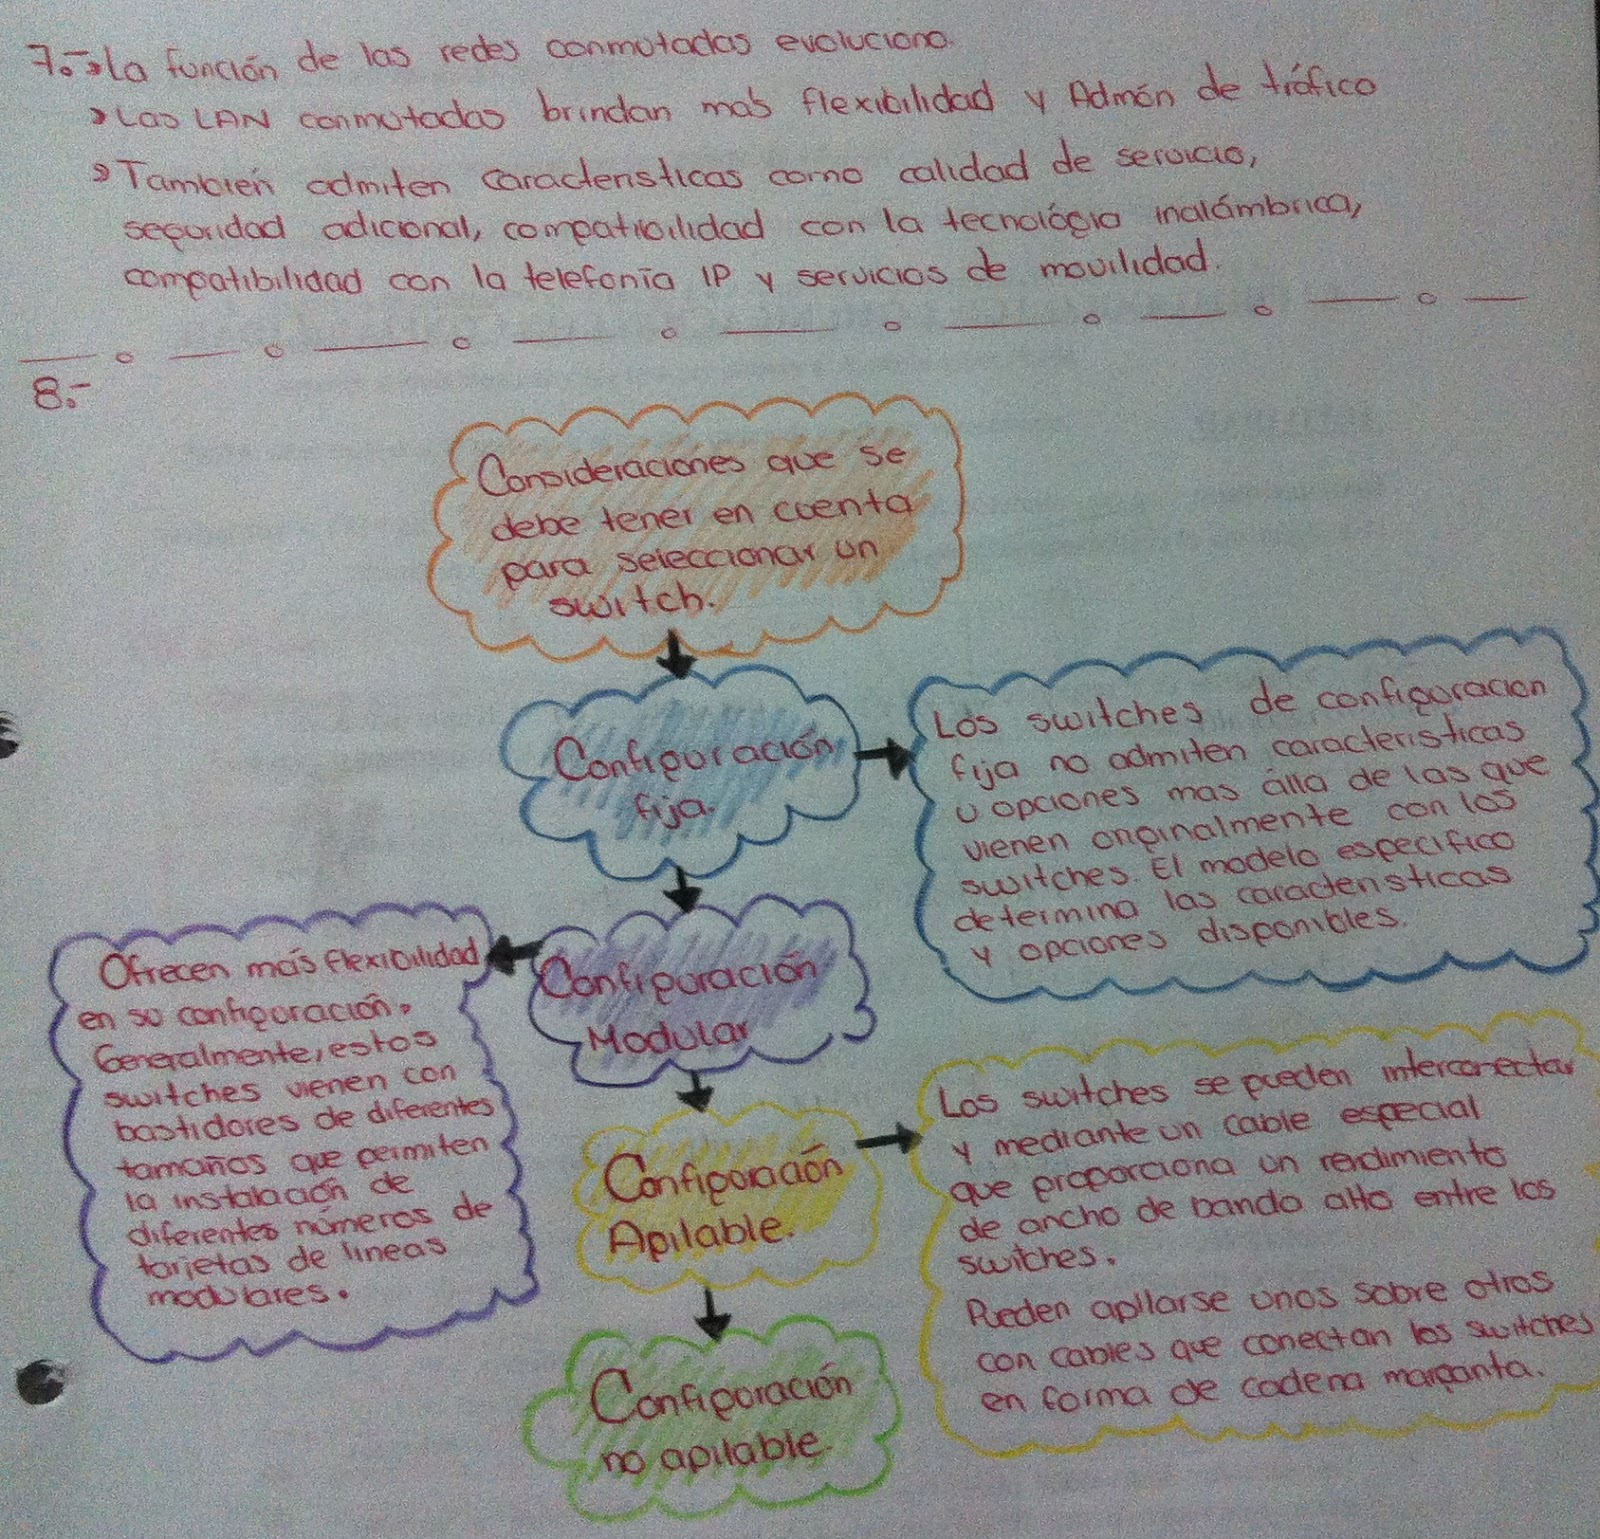 7.- La función de las redes conmutadas evoluciona.
Las LAN conmutadas brindan más flexibilidad y Admón de tráfico
También admiten características como calidad de servicio,
seguridad adicional, compatibilidad con la tecnológia inalámbrica,
compatibilidad con la telefonía IP y servicios de movilidad.
8.-
Consideraciones que se
debe tener en cuenta
para seleccionar un
switch.
Configuración
fija.
Los switches de configuracion
fija no admiten caracteristicas
u opciones mas álla de las que
vienen originalmente con los
switches. El modelo especifico
determina las caracteristicas
y opciones disponibles.
Configuración
Modular
Ofrecen más flexibilidad
en su configuración.
Generalmente, estos
switches vienen con
bastidores de diferentes
tamaños que permiten
la instalación de
diferentes números de
tarjetas de lineas
modulares.
Configuración
Apilable.
Los switches se pueden interconectar
y mediante un cable especial
que proporciona un rendimiento
de ancho de banda alto entre los
switches.
Pueden apilarse unos sobre otros
con cables que conectan los switches
en forma de cadena margarita.
Configuración
no apilable.